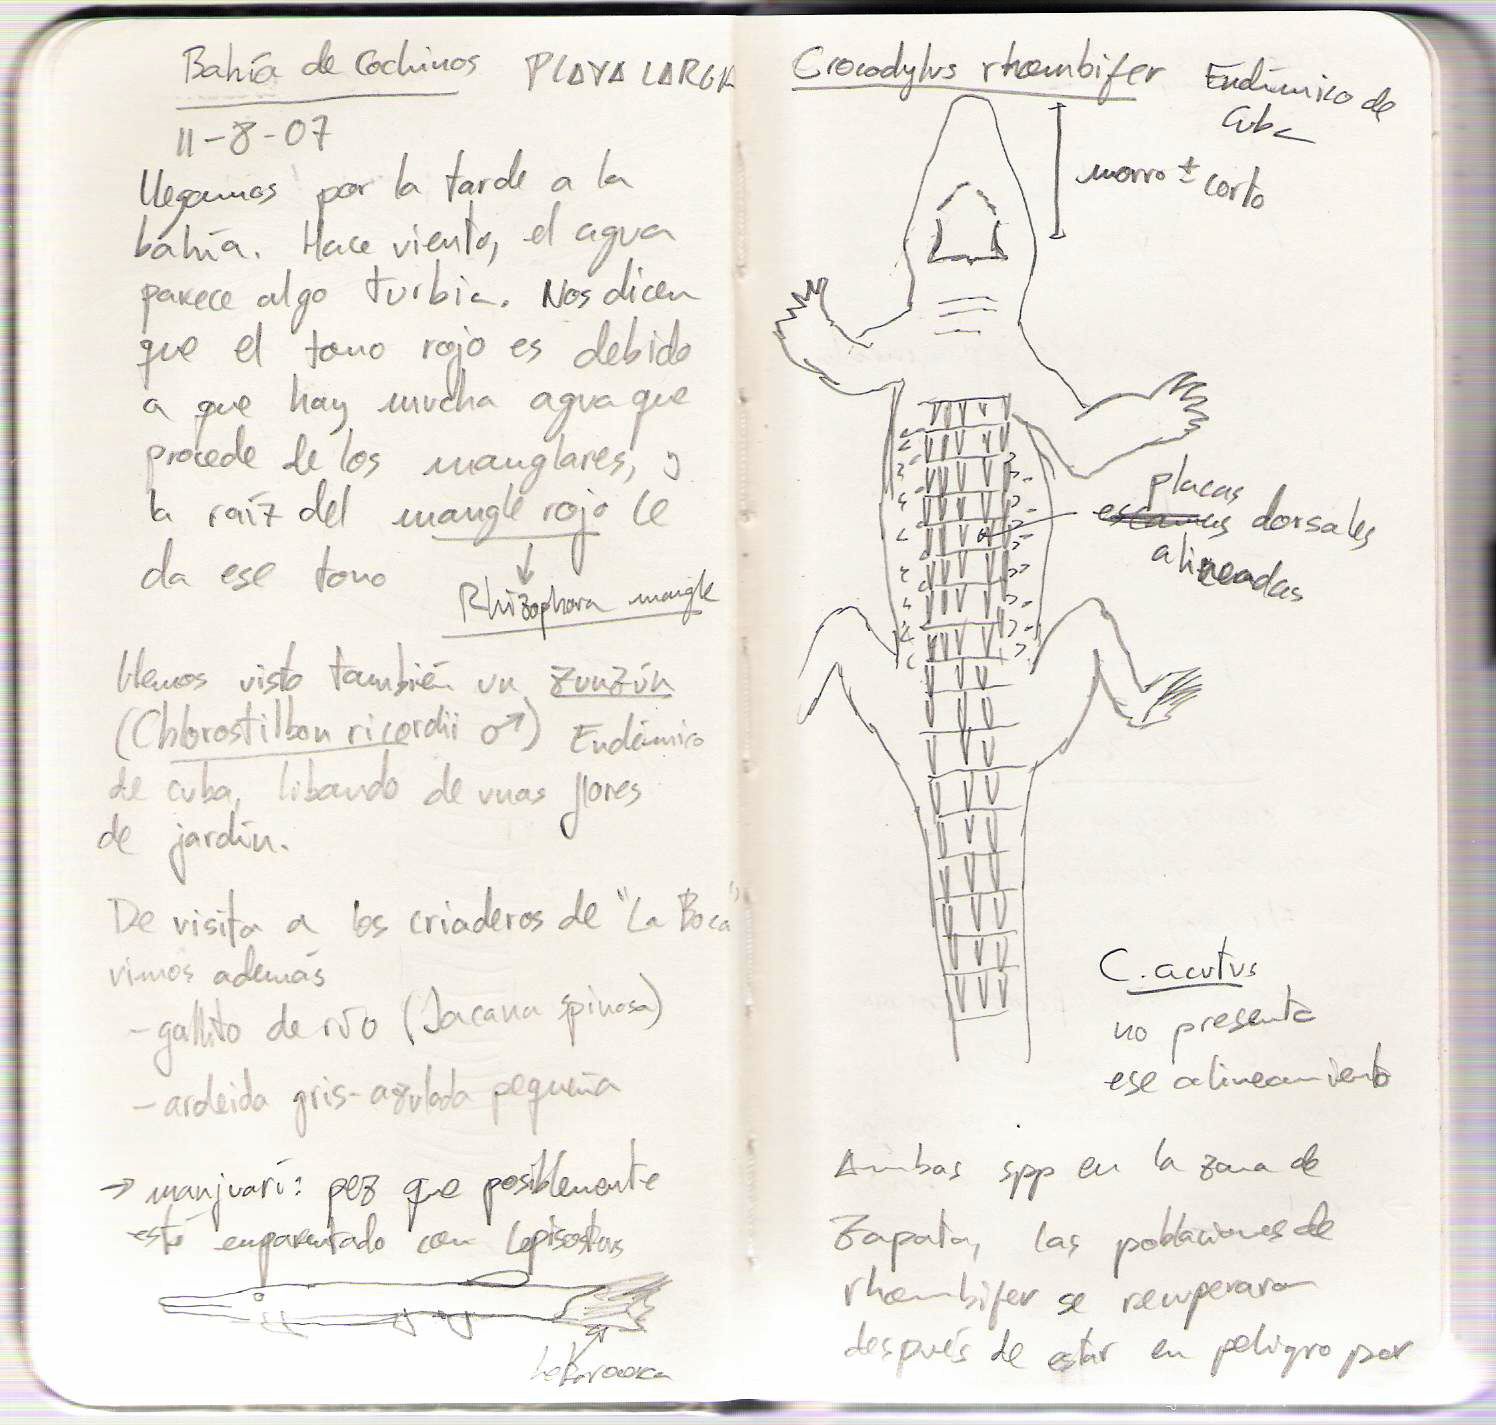 Bahía de Cochinos PLAYA LARGA
11-8-07
Llegamos por la tarde a la
bahía. Hace viento, el agua
parece algo turbia. Nos dicen
que el tono rojo es debido
a que hay mucha agua que
procede de los manglares, y
la raíz del mangle rojo le
da ese tono
Rhizophora mangle
Hemos visto también un zunzún
(Chlorostilbon ricordii ♂) Endémico
de cuba, libando de unas flores
de jardín.
De visita a los criaderos de "La Boca"
vimos además
- gallito de río (Jacana spinosa)
- ardeida gris-azulada pequeña
→ manjuarí: pez que posiblemente
esté emparentado con Lepisosteus
heterocerca
Crocodylus rhombifer Endémico de
Cuba
morro ± corto
placas
escamas dorsales
alineadas
C. acutus
no presenta
ese alineamiento
Ambas spp en la zona de
Zapata, las poblaciones de
rhombifer se recuperaron
después de estar en peligro por